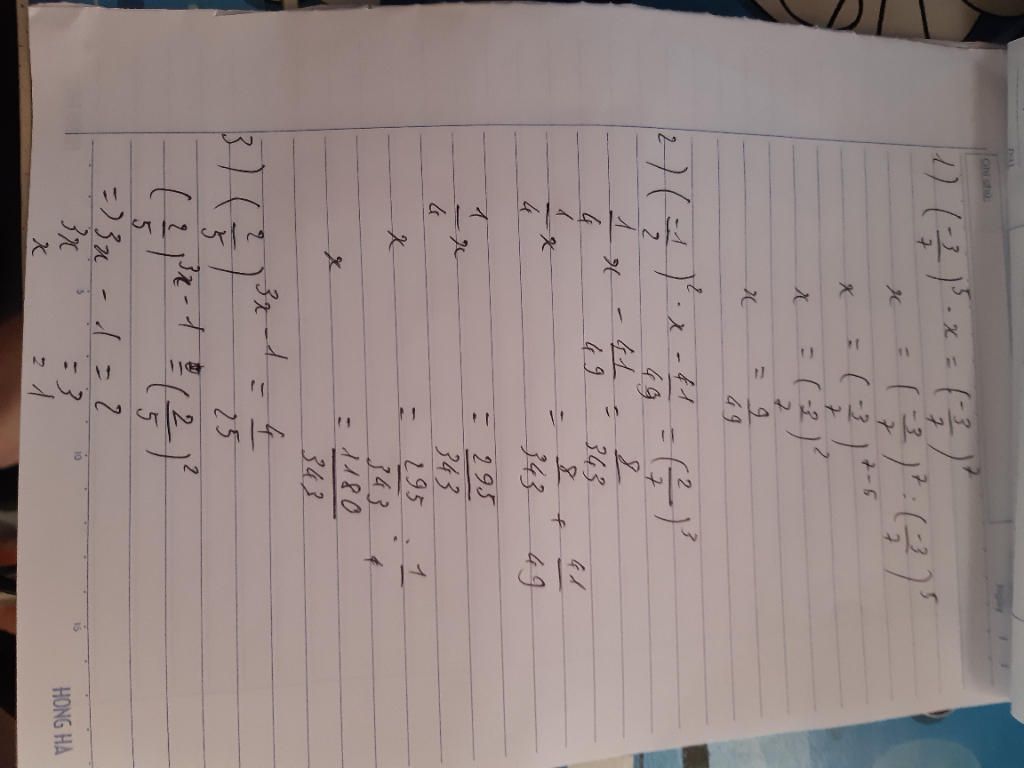 1) (-3/7)^5 . x = (-3/7)^7
x = (-3/7)^7 : (-3/7)^5
x = (-3/7)^7-5
x = (-3/7)^2
x = 9/49
2) (-1/2)^2 . x - 41/49 = (2/7)^3
1/4 x - 41/49 = 8/343
1/4 x = 8/343 + 41/49
1/4 x = 295/343
x = 295/343 : 1/4
x = 1180/343
3) (2/5)^3x - 1 = 4/25
(2/5)^3x - 1 = (2/5)^2
=) 3x - 1 = 2
3x = 3
x = 1
5 10 15
HONG HA